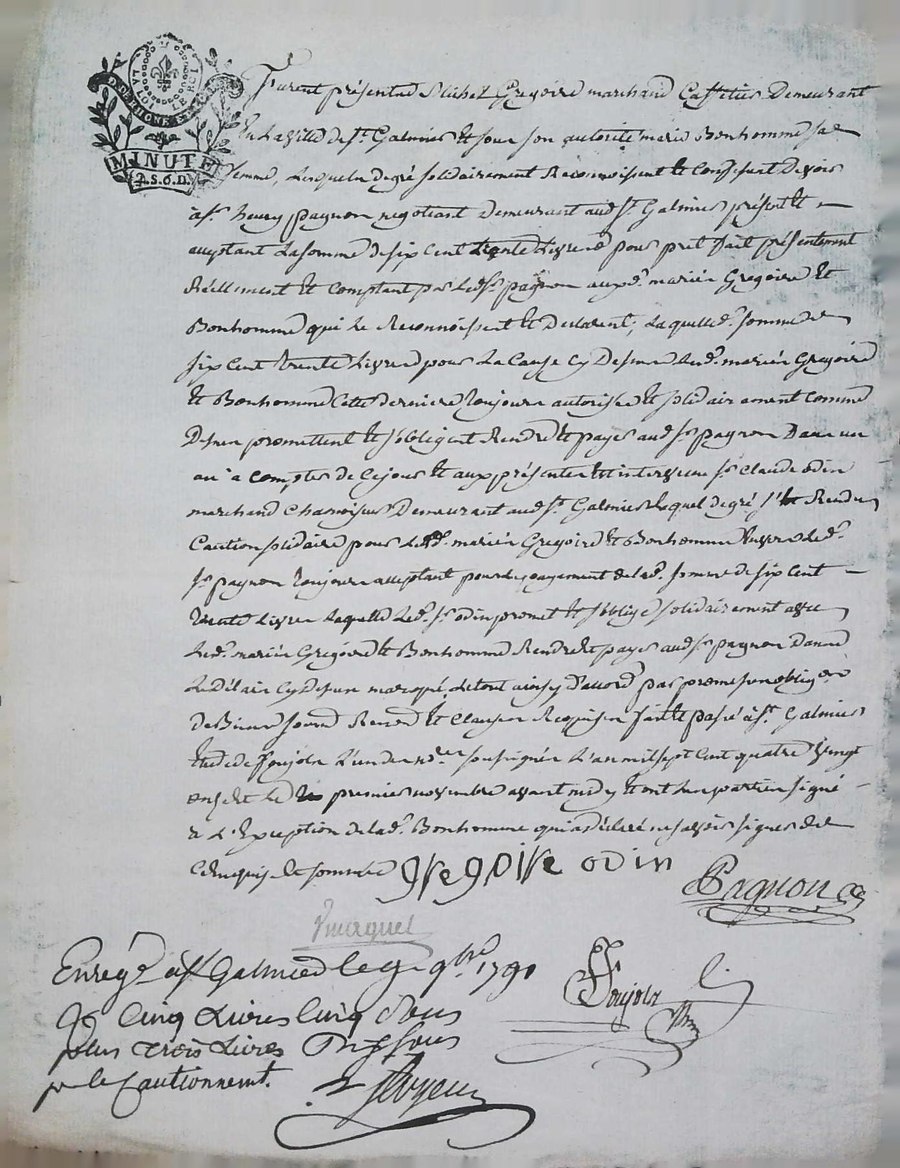 LA LOI ET LE ROI
MINUTE
2.S.6.D.
Furent présentes Michel Gregoire marchand Caffetier Demeurant
En la ville de st. Galmier Et sous son autorité marie Bonhomme sa
femme, Lesquels de gré solidairement Reconnoissent Et Confessent Devoir
à sr. henry pagnon negotiant Demeurant aud. st. Galmier présent Et
acceptant La somme de six cent trente Livres pour pret fait présentement
Réellement Et comptant par Led. sr. pagnon auxd. mariés Gregoire Et
Bonhomme qui Le Reconnoissent Et Declarent, Laquelle d. somme de
six Cent trente Livres pour La Cause Cy Dessus Led. mariés Gregoire
Et Bonhomme Cette derniere Toujours autorisée Et solidairement comme
Dessus promettent Et s'obligent Rendre Et payer aud. sr. pagnon Dans un
an a compter de Ce jour Et aux présentes Est intervenu sr. Claude odin
marchand Chamoiseur Demeurant aud. st. Galmier Lequel de gré s'est Rendu
Caution solidaire pour Lesd. mariés Gregoire Et Bonhomme Envers Led.
sr. pagnon Toujours acceptant pour Le payement de lad. somme de six Cent
trente Livres Laquelle Led. sr. odin promet Et s'oblige solidairement avec
Lesd. mariés Gregoire Et Bonhomme Rendre Et payer aud. sr. pagnon Dans
Le Délai Cy Dessus marqué, Le tout ainsy D'accord par promesses obligeon
De Biens soumd. Renond. Et Clauses Requises fait Et passé à st. Galmier
Etude de foujols L'un des nres. soussignés L'an mil sept Cent quatre vingt
onze Et Le premier novembre avant midy Et ont Les parties signé
à L'Exception de lad. Bonhomme qui a déclaré ne savoir signer de
Ce Enquise Et sommée gregoire odin
Pagnon
Enregé. à st Galmier le 9 9bre 1791
Rx Cinq Livres Cinq Sous
plus trois Livres Sous
pr le Cautionnement.
foujols